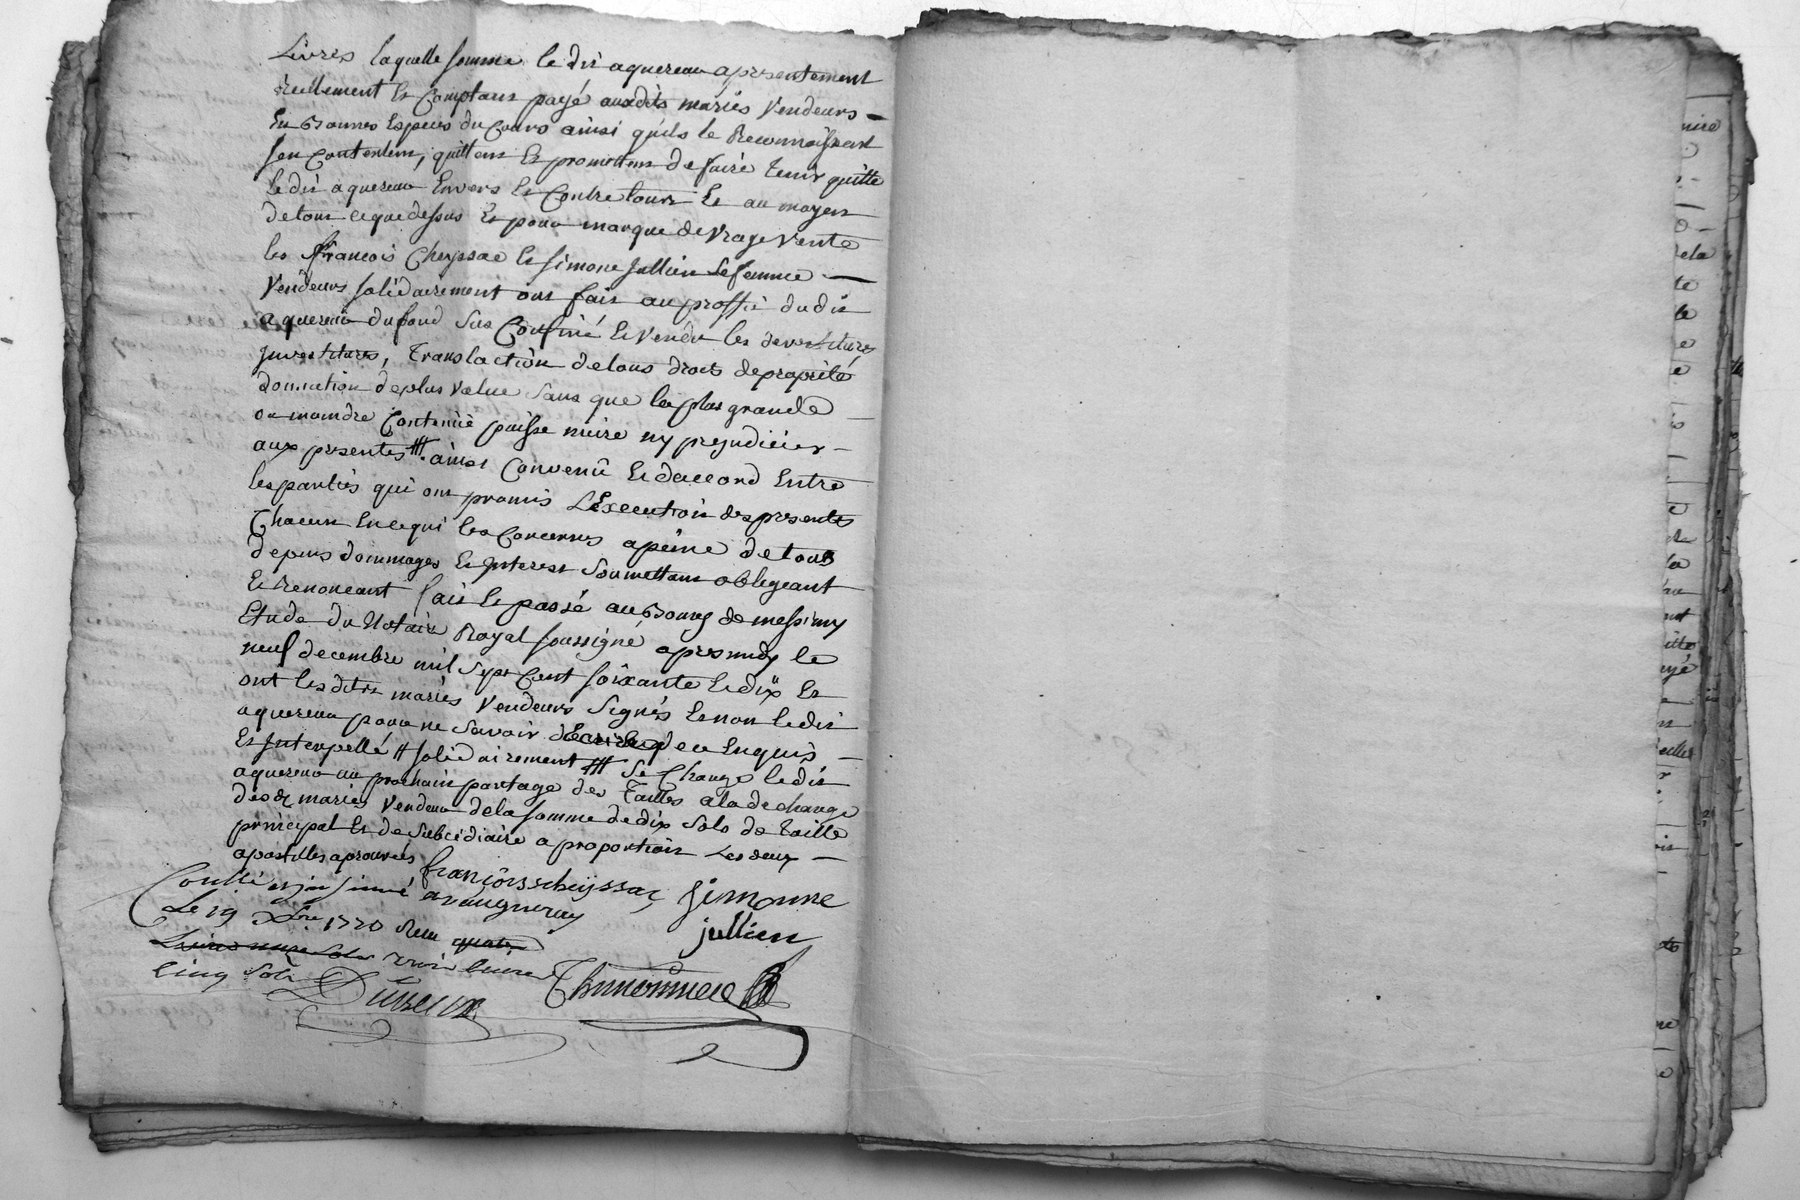 Livres laquelle somme le dit aquereur a presentement
reellement Et Comptant payé auxdits mariés Vendeurs
En Bonnes Especes du Cours ainsi quils le Reconnoissent
sen Contentent, quittent Et promettent de faire tenir quitte
Le dit aquereur Envers Et Contre tous Et au moyen
de tout ce que dessus Et pour marque de vraye vente
les François Cheyssac Et Simone Jullien sa femme
Vendeurs solidairement ont fait au proffit du dit
aquereur du fond sus Confiné Et Vendu les devestitures
Investitures, translaction de tous droits de proprieté
donnation de plus value sans que la plus grande
ou moindre Contenüe puisse nuire ny prejudicier
aux presentes ainsi Convenû Et daccord Entre
les parties qui ont promis L'Execution des presentes
Chacun En ce qui les Concernes a peine de tous
depens dommages Et Interest soumettant obligeant
Et Renonceant fait Et passé au Bourg de messimy
Etude du Notaire Royal soussigné apres midy le
neuf decembre mil sept Cent soixante Et dix Et
ont lesdits mariés Vendeurs signés Et non ledit
aquereur pour ne savoir de ce Enquis
Et Interpellé # solidairement ## se Charge ledit
aquereur au prochain partage des Tailles a la decharge
desdts mariés Vendeurs de la somme de dix sols de taille
principal Et de subcidiaire a proportion Les deux
apostilles aprouvées françois cheyssac Simonne
jullien
Conllé et insinué a vaugneray
Le 19 Xbre 1770 Reçu quatre
Livres onze sols trois livres
Cinq sols